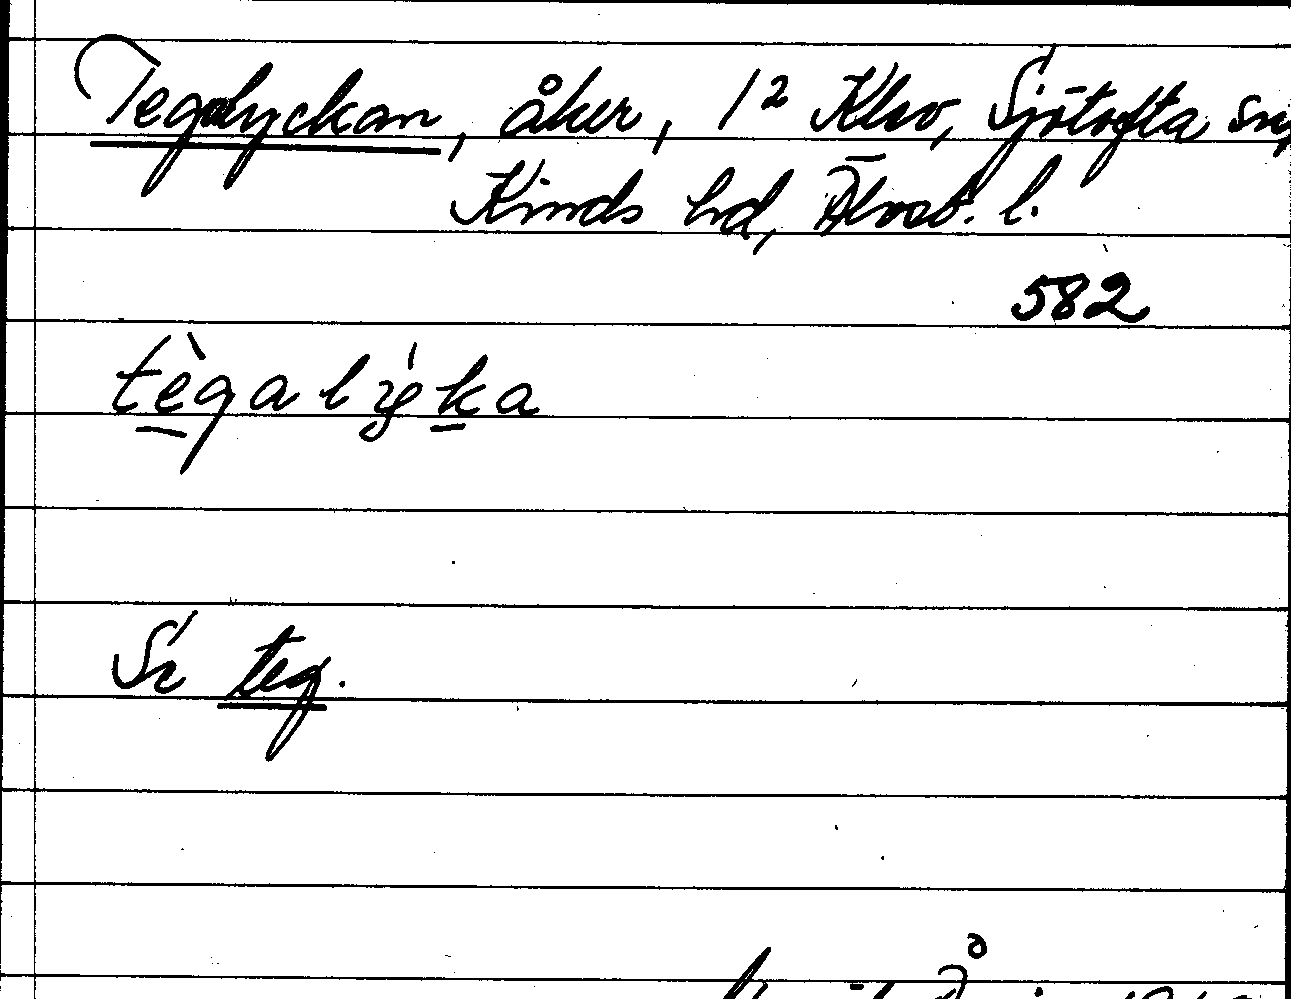 Tegalyckan, åker, 1² Klev, Sjötofta sn,
Kinds hd, Älvsb. l.
582
tègalýka
Se teg.